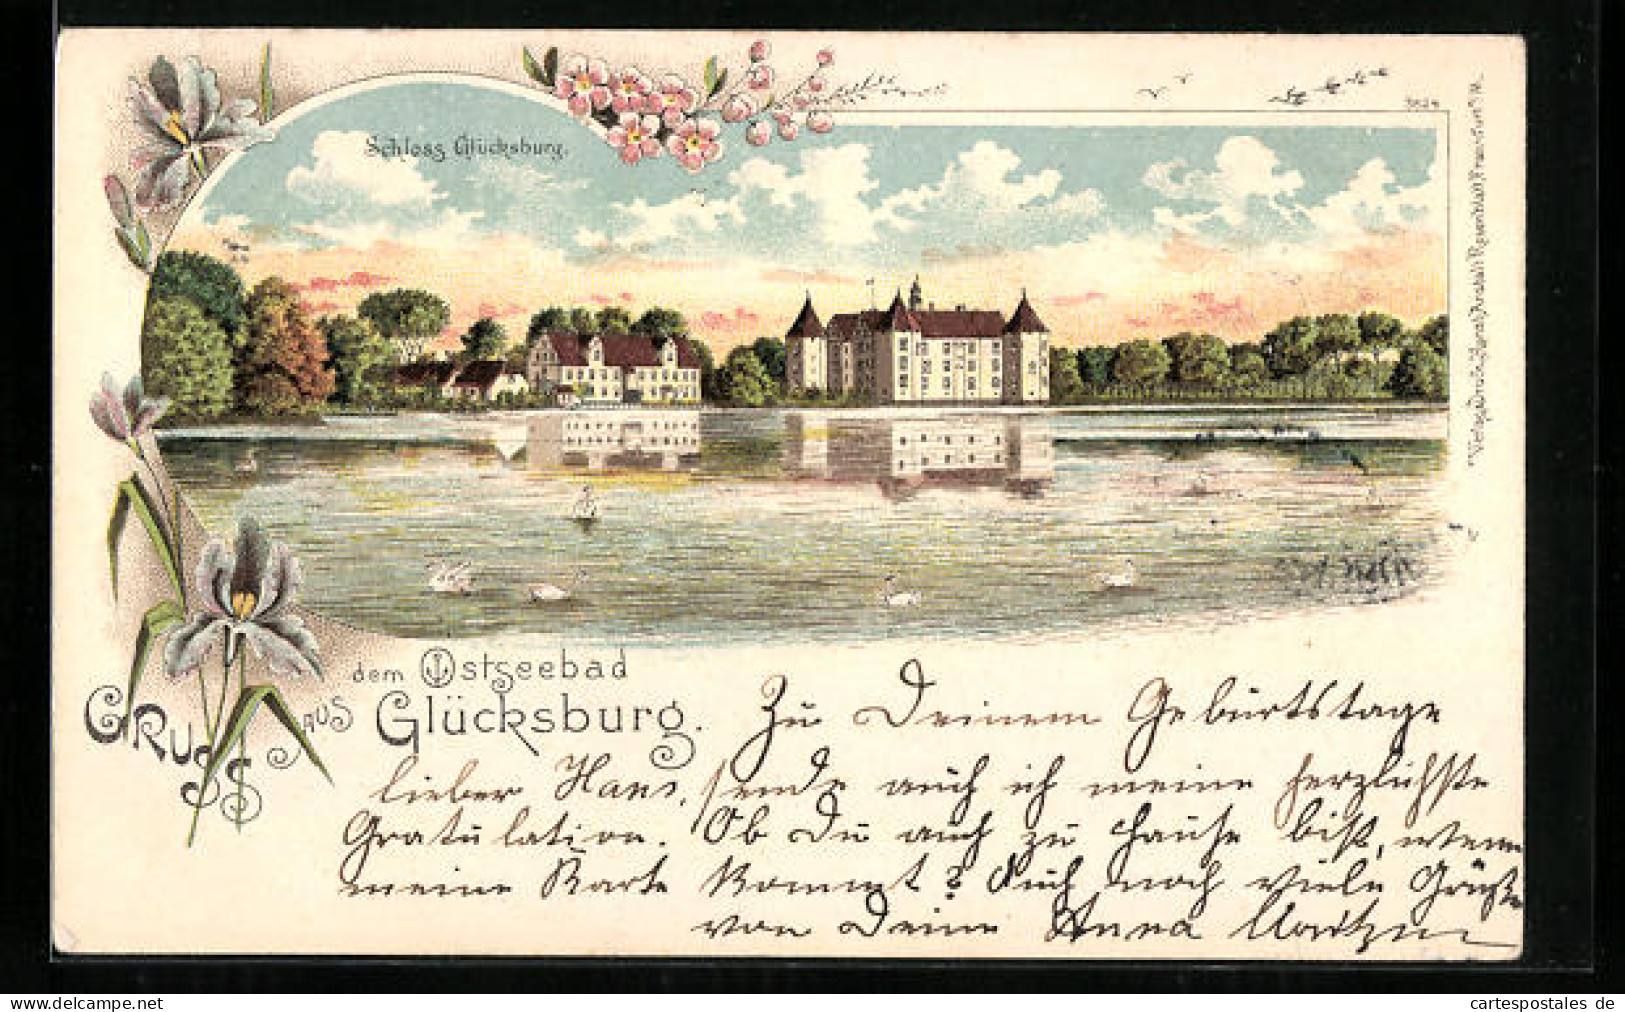 Schloss Glücksburg.
Verlag v. Kunst-Anstalt Rosenblatt, Frankfurt a/M.
GRUSS AUS
dem Ostseebad
Glücksburg.
Zu Deinem Geburtstage
lieber Hans, sende auch ich meine herzlichste
Gratulation. Ob Du auch zu Hause bist, wenn
meine Karte kommt? Auch noch viele Grüße
von Deine Anna
cartespostales de